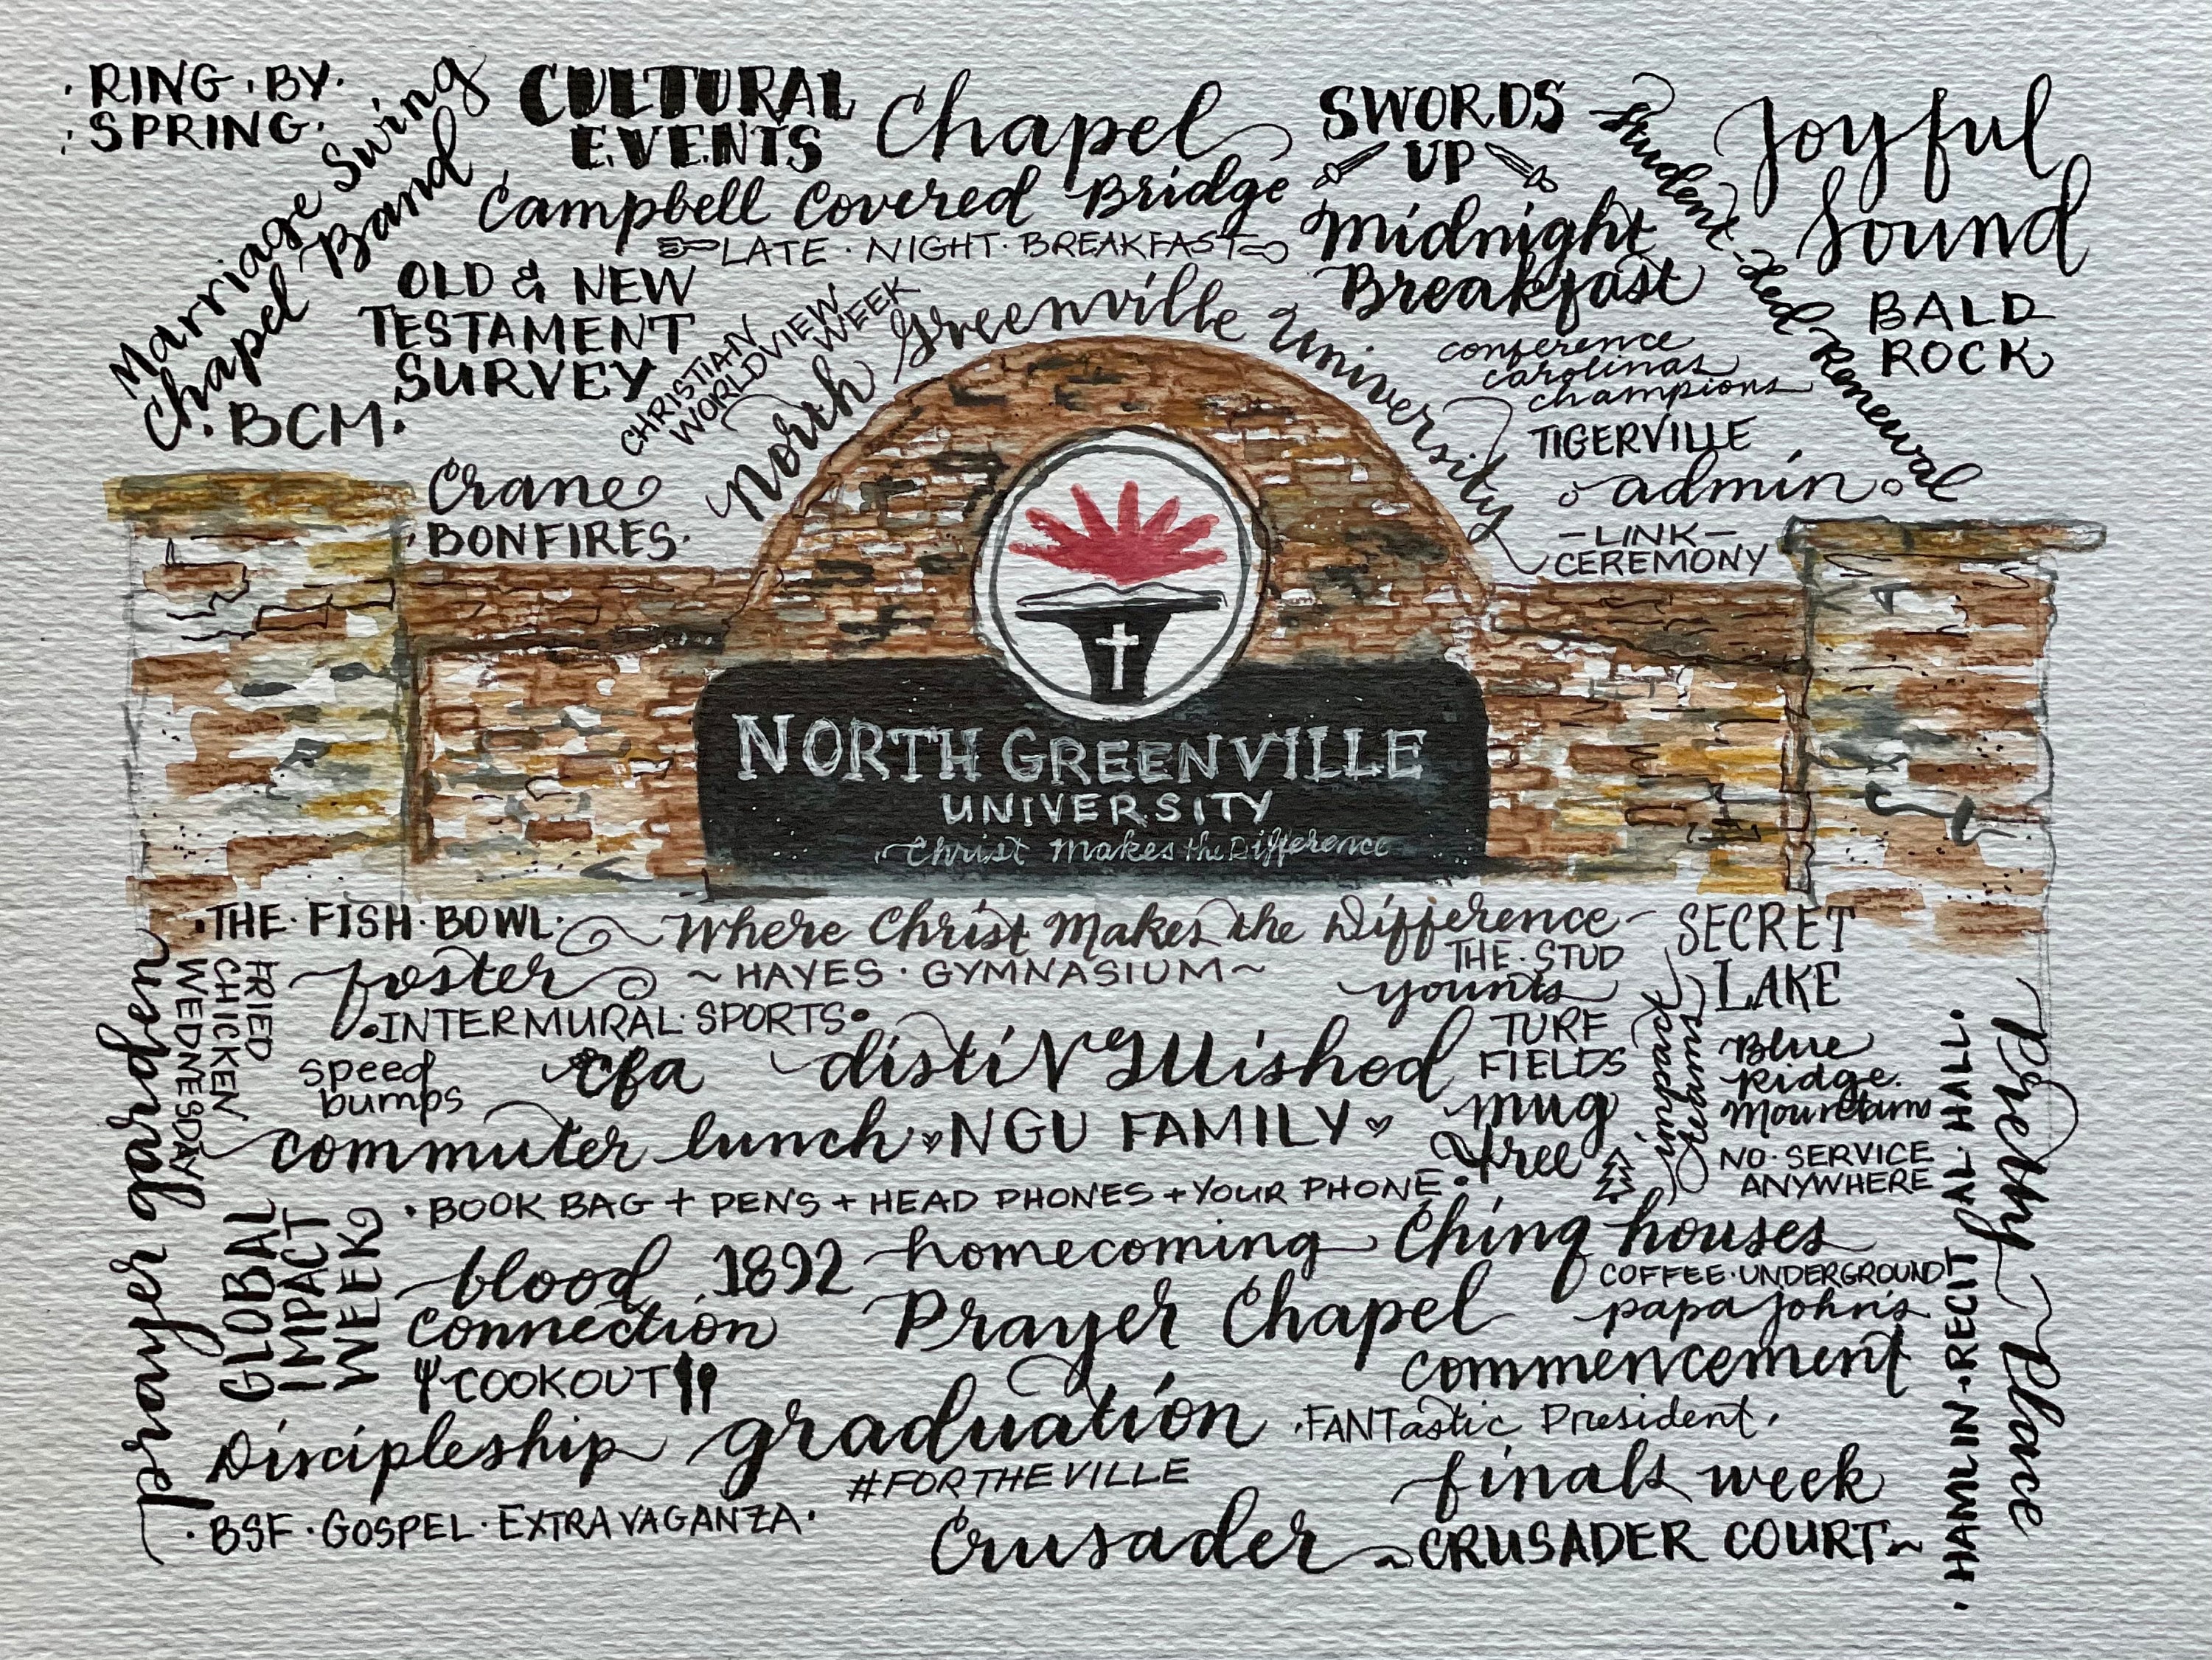 · RING · BY ·
· SPRING ·
Marriage Swing
Chapel Band
CULTURAL
EVENTS
Chapel
SWORDS
UP
Student-led Renewal
Joyful
Sound
Campbell Covered Bridge
LATE · NIGHT · BREAKFAST
Midnight
Breakfast
OLD & NEW
TESTAMENT
SURVEY
CHRISTIAN
WORLDVIEW
WEEK
North Greenville University
conference
carolinas
champions
BALD
ROCK
· BCM ·
TIGERVILLE
admin
Crane
· BONFIRES ·
– LINK –
CEREMONY
NORTH GREENVILLE
UNIVERSITY
Christ Makes the Difference
· THE · FISH · BOWL ·
Where Christ Makes the Difference
SECRET
LAKE
foster
~ HAYES · GYMNASIUM ~
THE · STUD
younts
prayer garden
FRIED
CHICKEN
WEDNESDAY
• INTERMURAL · SPORTS •
TURF
FIELDS
speed
bumps
cfa
distiNGUished
mug
tree
Blue
Ridge
Mountains
NO · SERVICE
ANYWHERE
commuter lunch
NGU FAMILY
• BOOK BAG + PENS + HEAD PHONES + YOUR PHONE •
GLOBAL
IMPACT
WEEK
blood
connection
1892
homecoming
Ching houses
COFFEE · UNDERGROUND
papa john's
Prayer Chapel
COOKOUT
commencement
Discipleship
graduation
· FANTastic President ·
#FORTHEVILLE
finals week
· BSF · GOSPEL · EXTRAVAGANZA ·
Crusader
~ CRUSADER COURT ~
· HAMLIN · RECITAL · HALL ·
Pretty Place